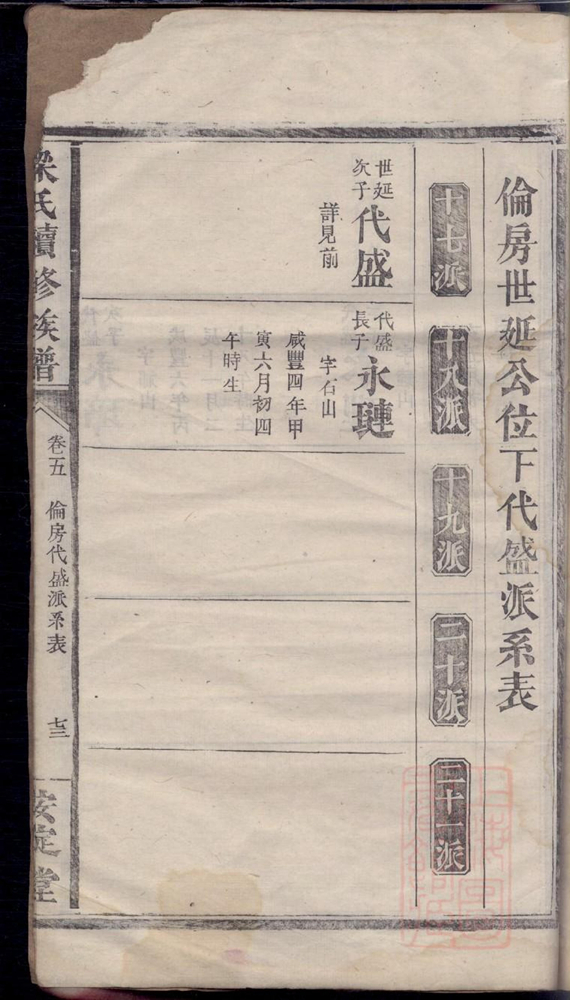 倫房世延公位下代盛派系表
十七派
十八派
十九派
二十派
二十一派
世延
次子
代盛
詳見前
代盛
長子
永璉
字石山
咸豐四年甲
寅六月初四
午時生
梁氏續修族譜
卷五
倫房代盛派系表
七三
安定堂